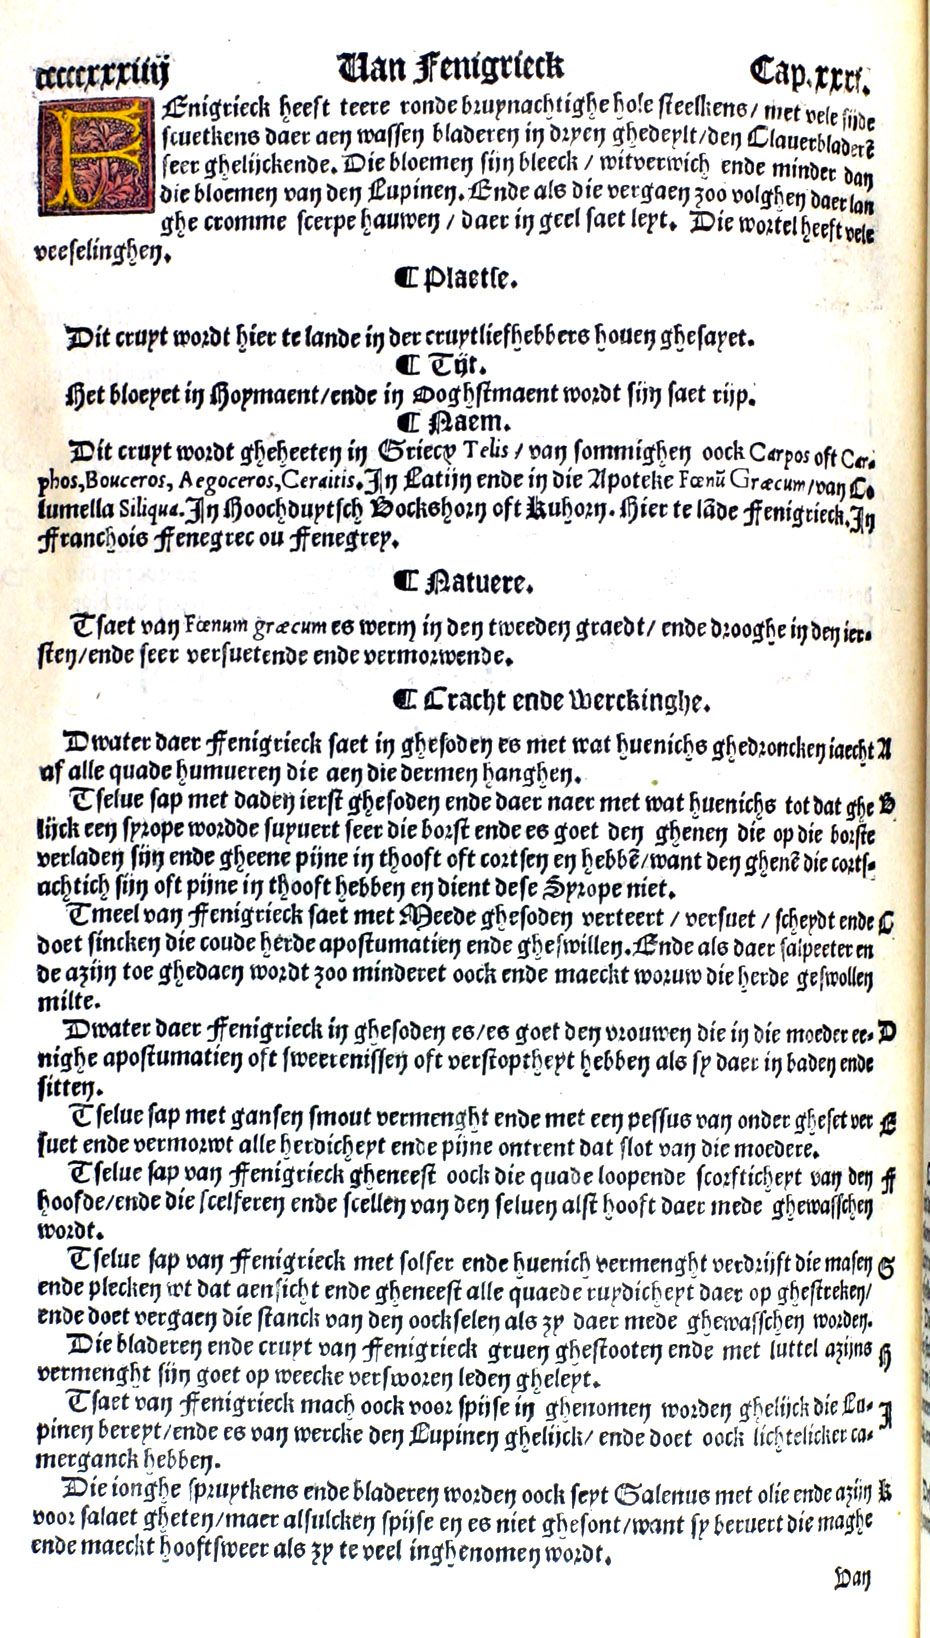 ccccxxxiiij Van Fenigrieck Cap.xxxi.
FEnigrieck heeft teere ronde bruynachtighe hole steelkens/ met vele sijde
scuetkens daer aen wassen bladeren in dryen ghedeylt/den Clauerbladerē
seer ghelijckende. Die bloemen sijn bleeck / witverwich ende minder dan
die bloemen van den Lupinen. Ende als die vergaen zoo volghen daer lan
ghe cromme scerpe hauwen / daer in geel saet leyt. Die wortel heeft vele
veeselinghen.
¶ Plaetse.
Dit cruyt wordt hier te lande in der cruytliefhebbers houen ghesayet.
¶ Tijt.
Het bloeyet in Hoymaent/ende in Ooghstmaent wordt sijn saet rijp.
¶ Naem.
Dit cruyt wordt gheheeten in Griecx Telis / van sommighen oock Carpos oft Car-
phos, Bouceros, Aegoceros, Ceraitis. In Latijn ende in die Apoteke Fœnū Græcum/van Co
lumella Siliqua. In Hoochduytsch Bockshorn oft Kuhorn. Hier te lāde Fenigrieck. In
Franchois Fenegrec ou Fenegrey.
¶ Natuere.
Tsaet van Fœnum græcum es werm in den tweeden graedt/ ende drooghe in den ier-
sten/ende seer versuetende ende vermorwende.
¶ Cracht ende Werckinghe.
Dwater daer Fenigrieck saet in ghesoden es met wat huenichs ghedroncken iaecht A
af alle quade humueren die aen die dermen hanghen.
Tselue sap met daden ierst ghesoden ende daer naer met wat huenichs tot dat ghe B
lijck een syrope wordde suyuert seer die borst ende es goet den ghenen die op die borste
verladen sijn ende gheene pijne in thooft oft cortsen en hebbē/want den ghenē die corts-
achtich sijn oft pijne in thooft hebben en dient dese Syrope niet.
Tmeel van Fenigrieck saet met Meede ghesoden verteert / versuet / scheydt ende C
doet sincken die coude herde apostumatien ende gheswillen. Ende als daer salpeeter en
de azijn toe ghedaen wordt zoo minderet oock ende maeckt moruw die herde geswollen
milte.
Dwater daer Fenigrieck in ghesoden es/es goet den vrouwen die in die moeder ee- D
nighe apostumatien oft sweerenissen oft verstoptheyt hebben als sy daer in baden ende
sitten.
Tselue sap met gansen smout vermenght ende met een pessus van onder gheset ver E
suet ende vermorwt alle herdicheyt ende pijne ontrent dat slot van die moedere.
Tselue sap van Fenigrieck gheneest oock die quade loopende scorfticheyt van den F
hoofde/ende die scelferen ende scellen van den seluen alst hooft daer mede ghewasschen
wordt.
Tselue sap van Fenigrieck met solfer ende huenich vermenght verdrijft die masen G
ende plecken wt dat aensicht ende gheneest alle quaede ruydicheyt daer op ghestreken/
ende doet vergaen die stanck van den oockselen als zy daer mede ghewasschen worden.
Die bladeren ende cruyt van Fenigrieck gruen ghestooten ende met luttel azijns H
vermenght sijn goet op weecke versworen leden gheleyt.
Tsaet van Fenigrieck mach oock voor spijse in ghenomen worden ghelijck die Lu- I
pinen bereyt/ende es van wercke den Lupinen ghelijck/ ende doet oock lichtelicker ca-
merganck hebben.
Die ionghe spruytkens ende bladeren worden oock seyt Galenus met olie ende azijn K
voor salaet gheten/maer alsulcken spijse en es niet ghesont/want sy beruert die maghe
ende maeckt hooftsweer als zy te veel inghenomen wordt.
Van